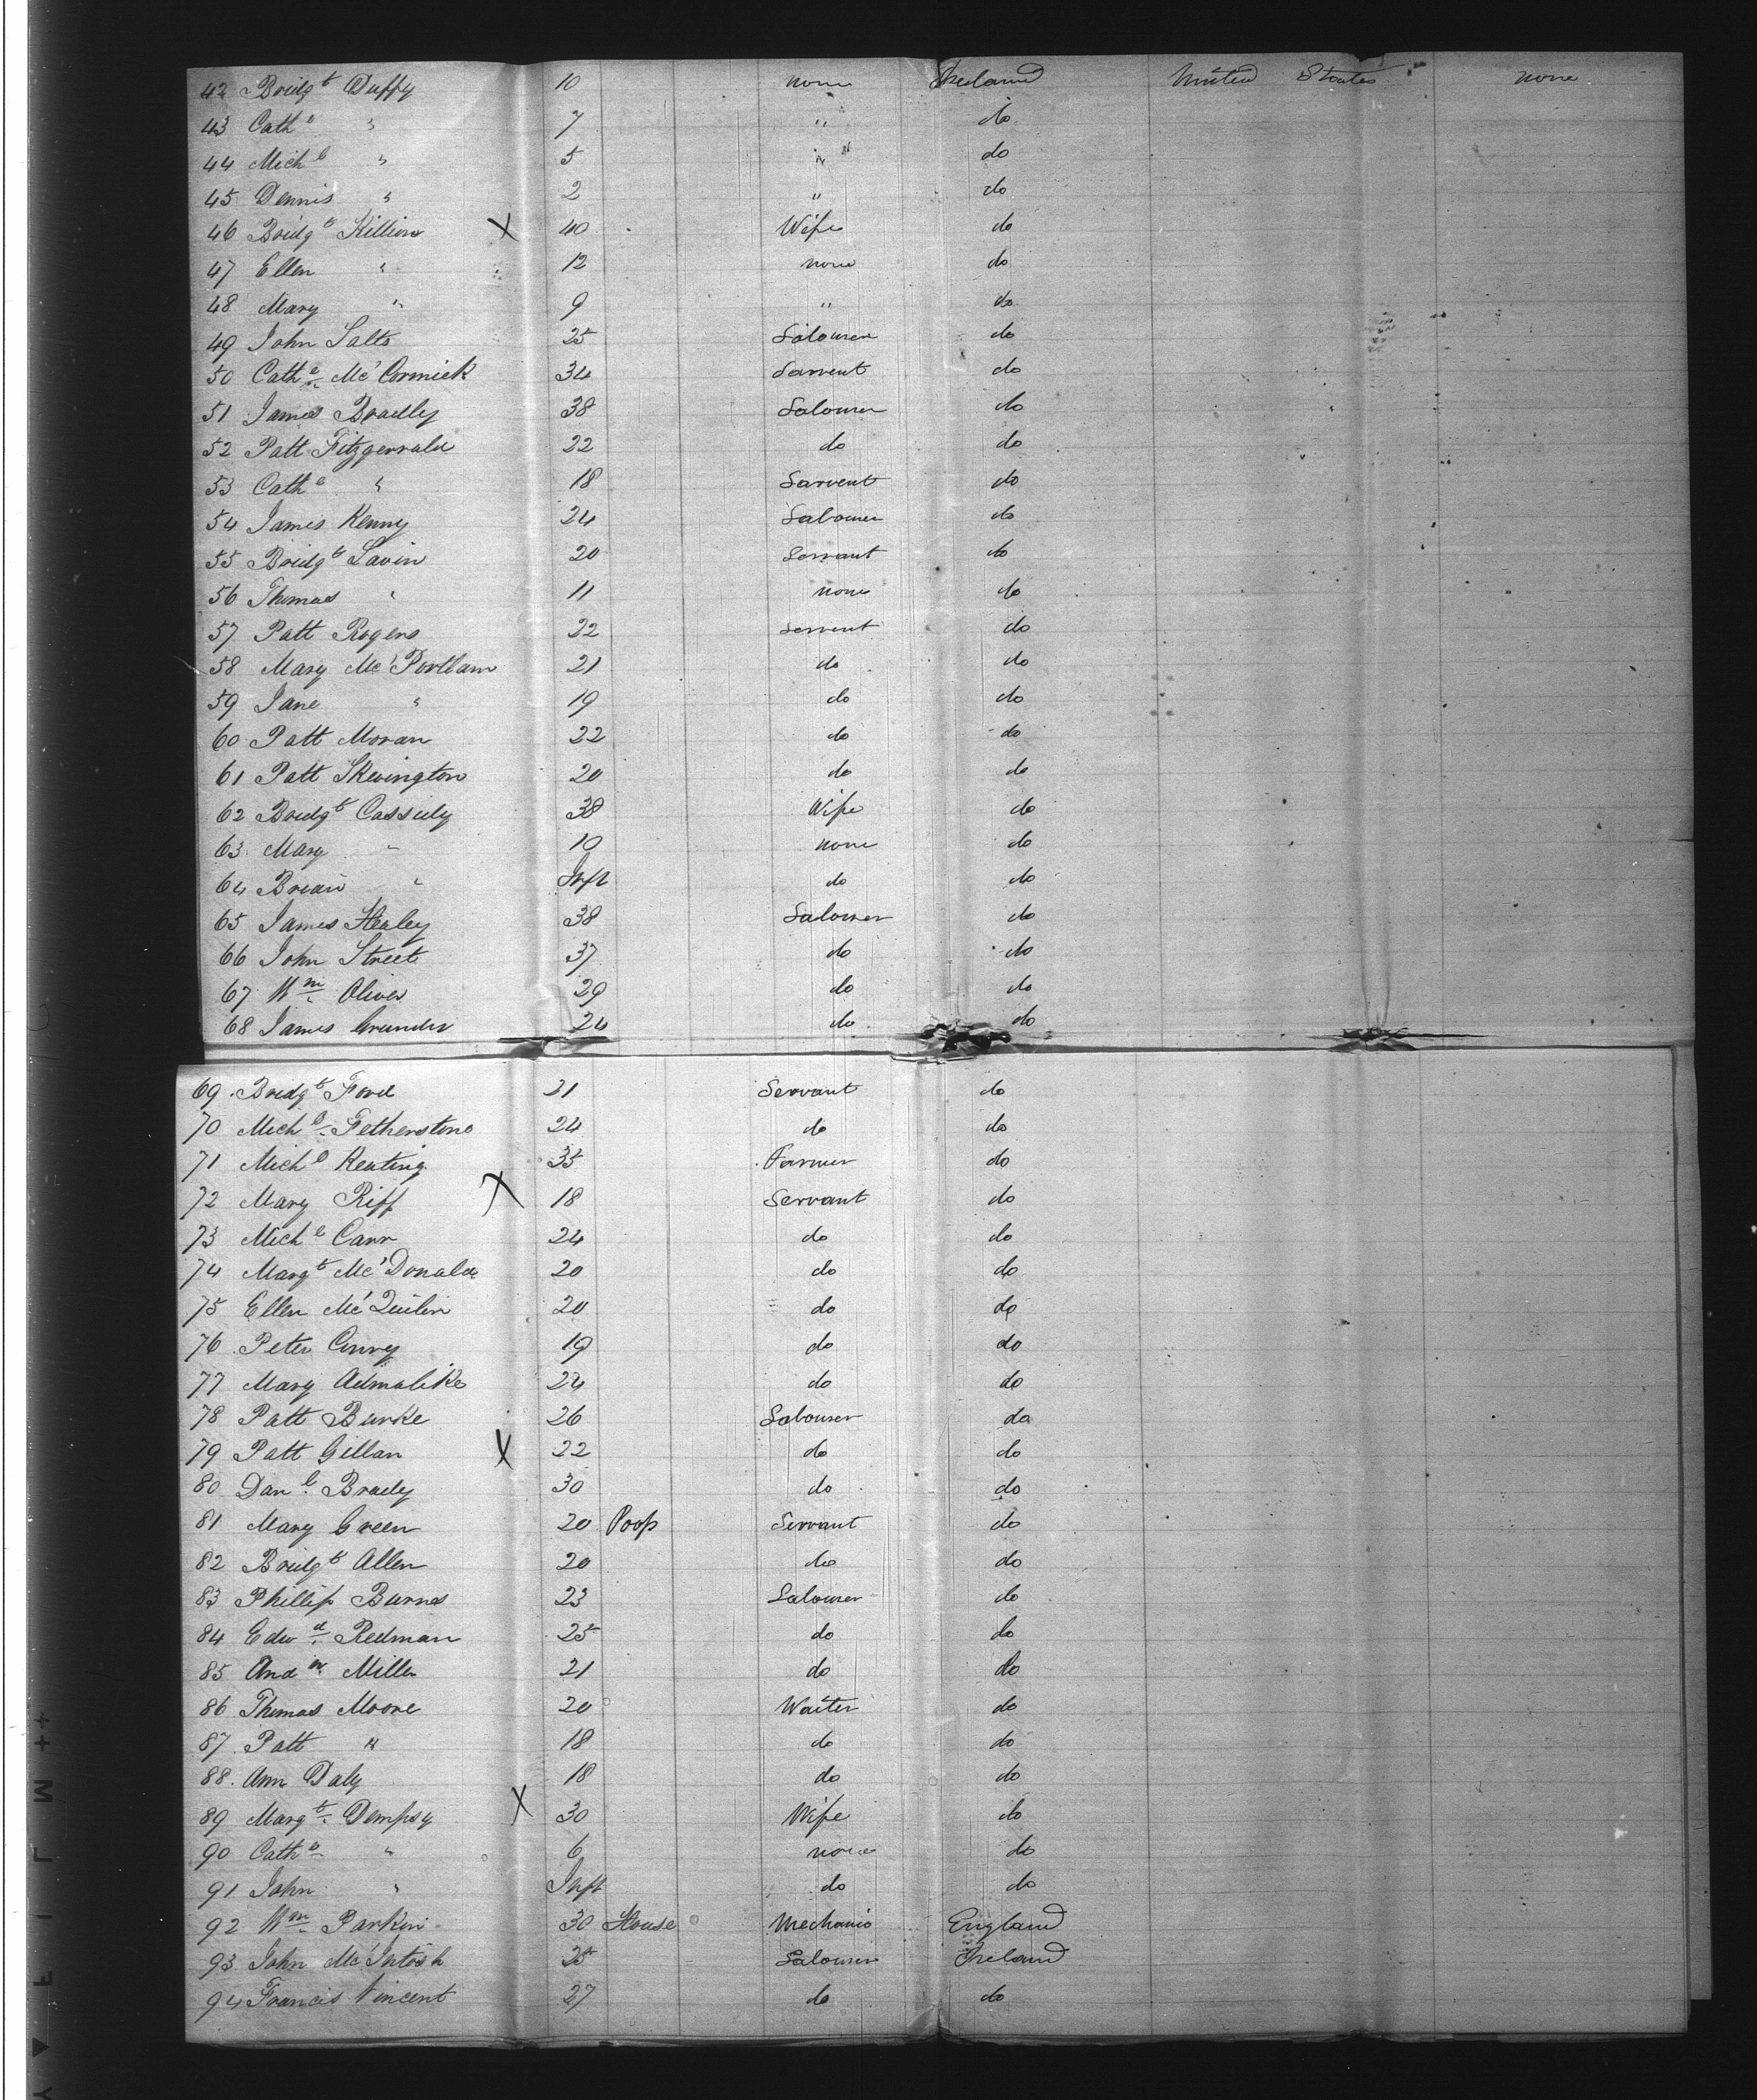 42 Bridgt Duffy 10 none Ireland United States none
43 Cathe " 7 " do
44 Michl " 5 " " do
45 Dennis " 2 " do
46 Bridgt Killion X 40 Wife do
47 Ellen " 12 none do
48 Mary " 9 " do
49 John Salts 25 Labourer do
50 Cathe Mc'Cormick 34 Sarvent do
51 James Bradly 38 Labourer do
52 Patt Fitzgerrald 22 do do
53 Cathe " 18 Sarvent do
54 James Kenny 24 Labourer do
55 Bridgt Lavin 20 Servant do
56 Thomas " 11 none do
57 Patt Rogers 22 Servent do
58 Mary Mc'Portlam 21 do do
59 Jane " 19 do do
60 Patt Moran 22 do do
61 Patt Skevington 20 do do
62 Bridgt Cassidy 38 Wife do
63 Mary " 10 none do
64 Brian " Inft do do
65 James Healey 38 Labourer do
66 John Street 37 do do
67 Wm Oliver 29 do do
68 James 24 do do
69 Bridgt Ford 31 Servant do
70 Michl Fetherstone 24 do do
71 Michl Keating 35 Farmer do
72 Mary Riff X 18 Servant do
73 Michl Carr 24 do do
74 Margt Mc'Donald 20 do do
75 Ellen Mc'Quilin 20 do do
76 Peter 19 do do
77 Mary 24 do do
78 Patt Burke 26 Labourer do
79 Patt Gillan X 22 do do
80 Danl Brady 30 do do
81 Mary Green 20 Poop Servant do
82 Bridgt Allen 20 do do
83 Phillip Burns 23 Labourer do
84 Edwd Redman 25 do do
85 Andw Miller 21 do do
86 Thomas Moore 20 Waiter do
87 Patt " 18 do do
88 Ann Daly 18 do do
89 Margt Dempsy X 30 Wife do
90 Cathe " 6 none do
91 John " Inft do do
92 Wm Parkin 30 House Mechanic England
93 John Mc'Intosh 25 Labourer Ireland
94 Francis Vincent 27 do do